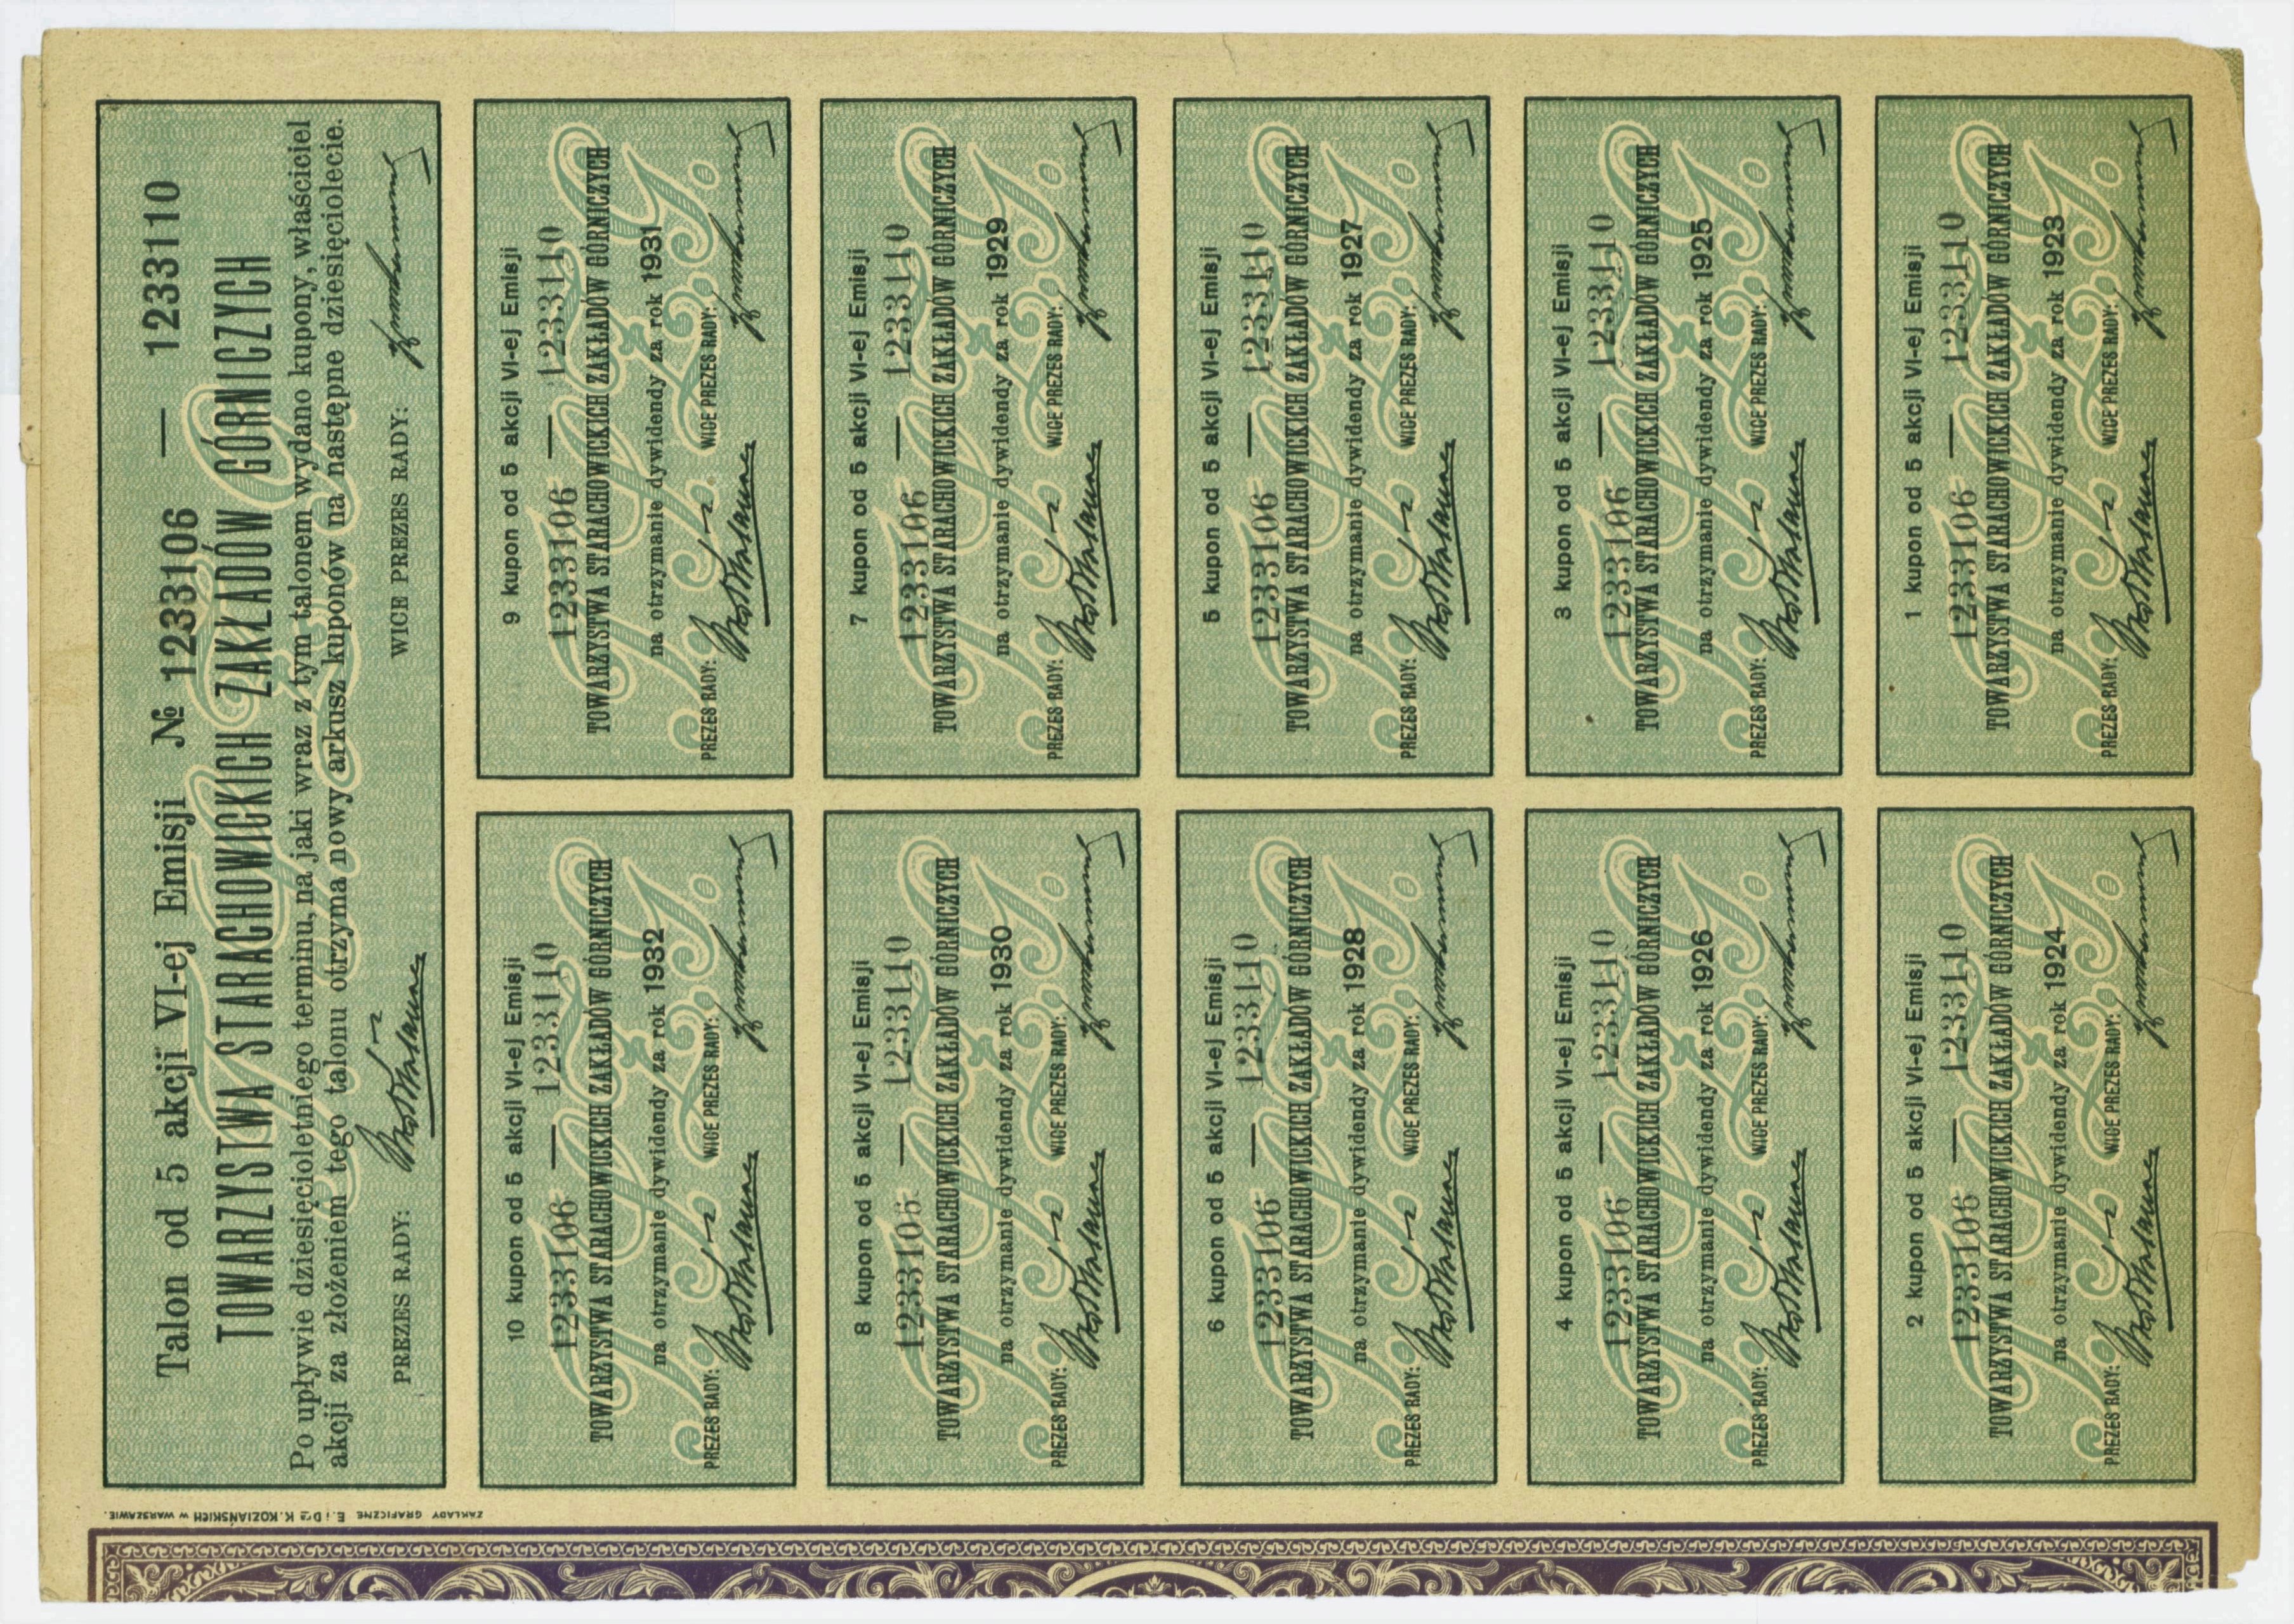 Talon od 5 akcji VI-ej Emisji № 1233106 — 1233110
TOWARZYSTWA STARACHOWICKICH ZAKŁADÓW GÓRNICZYCH
Po upływie dziesięcioletniego terminu, na jaki wraz z tym talonem wydano kupony, właściciel
akcji za złożeniem tego talonu otrzyma nowy arkusz kuponów na następne dziesięciolecie.
PREZES RADY: WICE PREZES RADY:
10 kupon od 5 akcji VI-ej Emisji
1233106 — 1233110
TOWARZYSTWA STARACHOWICKICH ZAKŁADÓW GÓRNICZYCH
na otrzymanie dywidendy za rok 1932
PREZES RADY: WICE PREZES RADY:
9 kupon od 5 akcji VI-ej Emisji
1233106 — 1233110
TOWARZYSTWA STARACHOWICKICH ZAKŁADÓW GÓRNICZYCH
na otrzymanie dywidendy za rok 1931
PREZES RADY: WICE PREZES RADY:
8 kupon od 5 akcji VI-ej Emisji
1233106 — 1233110
TOWARZYSTWA STARACHOWICKICH ZAKŁADÓW GÓRNICZYCH
na otrzymanie dywidendy za rok 1930
PREZES RADY: WICE PREZES RADY:
7 kupon od 5 akcji VI-ej Emisji
1233106 — 1233110
TOWARZYSTWA STARACHOWICKICH ZAKŁADÓW GÓRNICZYCH
na otrzymanie dywidendy za rok 1929
PREZES RADY: WICE PREZES RADY:
6 kupon od 5 akcji VI-ej Emisji
1233106 — 1233110
TOWARZYSTWA STARACHOWICKICH ZAKŁADÓW GÓRNICZYCH
na otrzymanie dywidendy za rok 1928
PREZES RADY: WICE PREZES RADY:
5 kupon od 5 akcji VI-ej Emisji
1233106 — 1233110
TOWARZYSTWA STARACHOWICKICH ZAKŁADÓW GÓRNICZYCH
na otrzymanie dywidendy za rok 1927
PREZES RADY: WICE PREZES RADY:
4 kupon od 5 akcji VI-ej Emisji
1233106 — 1233110
TOWARZYSTWA STARACHOWICKICH ZAKŁADÓW GÓRNICZYCH
na otrzymanie dywidendy za rok 1926
PREZES RADY: WICE PREZES RADY:
3 kupon od 5 akcji VI-ej Emisji
1233106 — 1233110
TOWARZYSTWA STARACHOWICKICH ZAKŁADÓW GÓRNICZYCH
na otrzymanie dywidendy za rok 1925
PREZES RADY: WICE PREZES RADY:
2 kupon od 5 akcji VI-ej Emisji
1233106 — 1233110
TOWARZYSTWA STARACHOWICKICH ZAKŁADÓW GÓRNICZYCH
na otrzymanie dywidendy za rok 1924
PREZES RADY: WICE PREZES RADY:
1 kupon od 5 akcji VI-ej Emisji
1233106 — 1233110
TOWARZYSTWA STARACHOWICKICH ZAKŁADÓW GÓRNICZYCH
na otrzymanie dywidendy za rok 1923
PREZES RADY: WICE PREZES RADY:
ZAKŁADY GRAFICZNE E. i Dra K. KOZIAŃSKICH w WARSZAWIE.